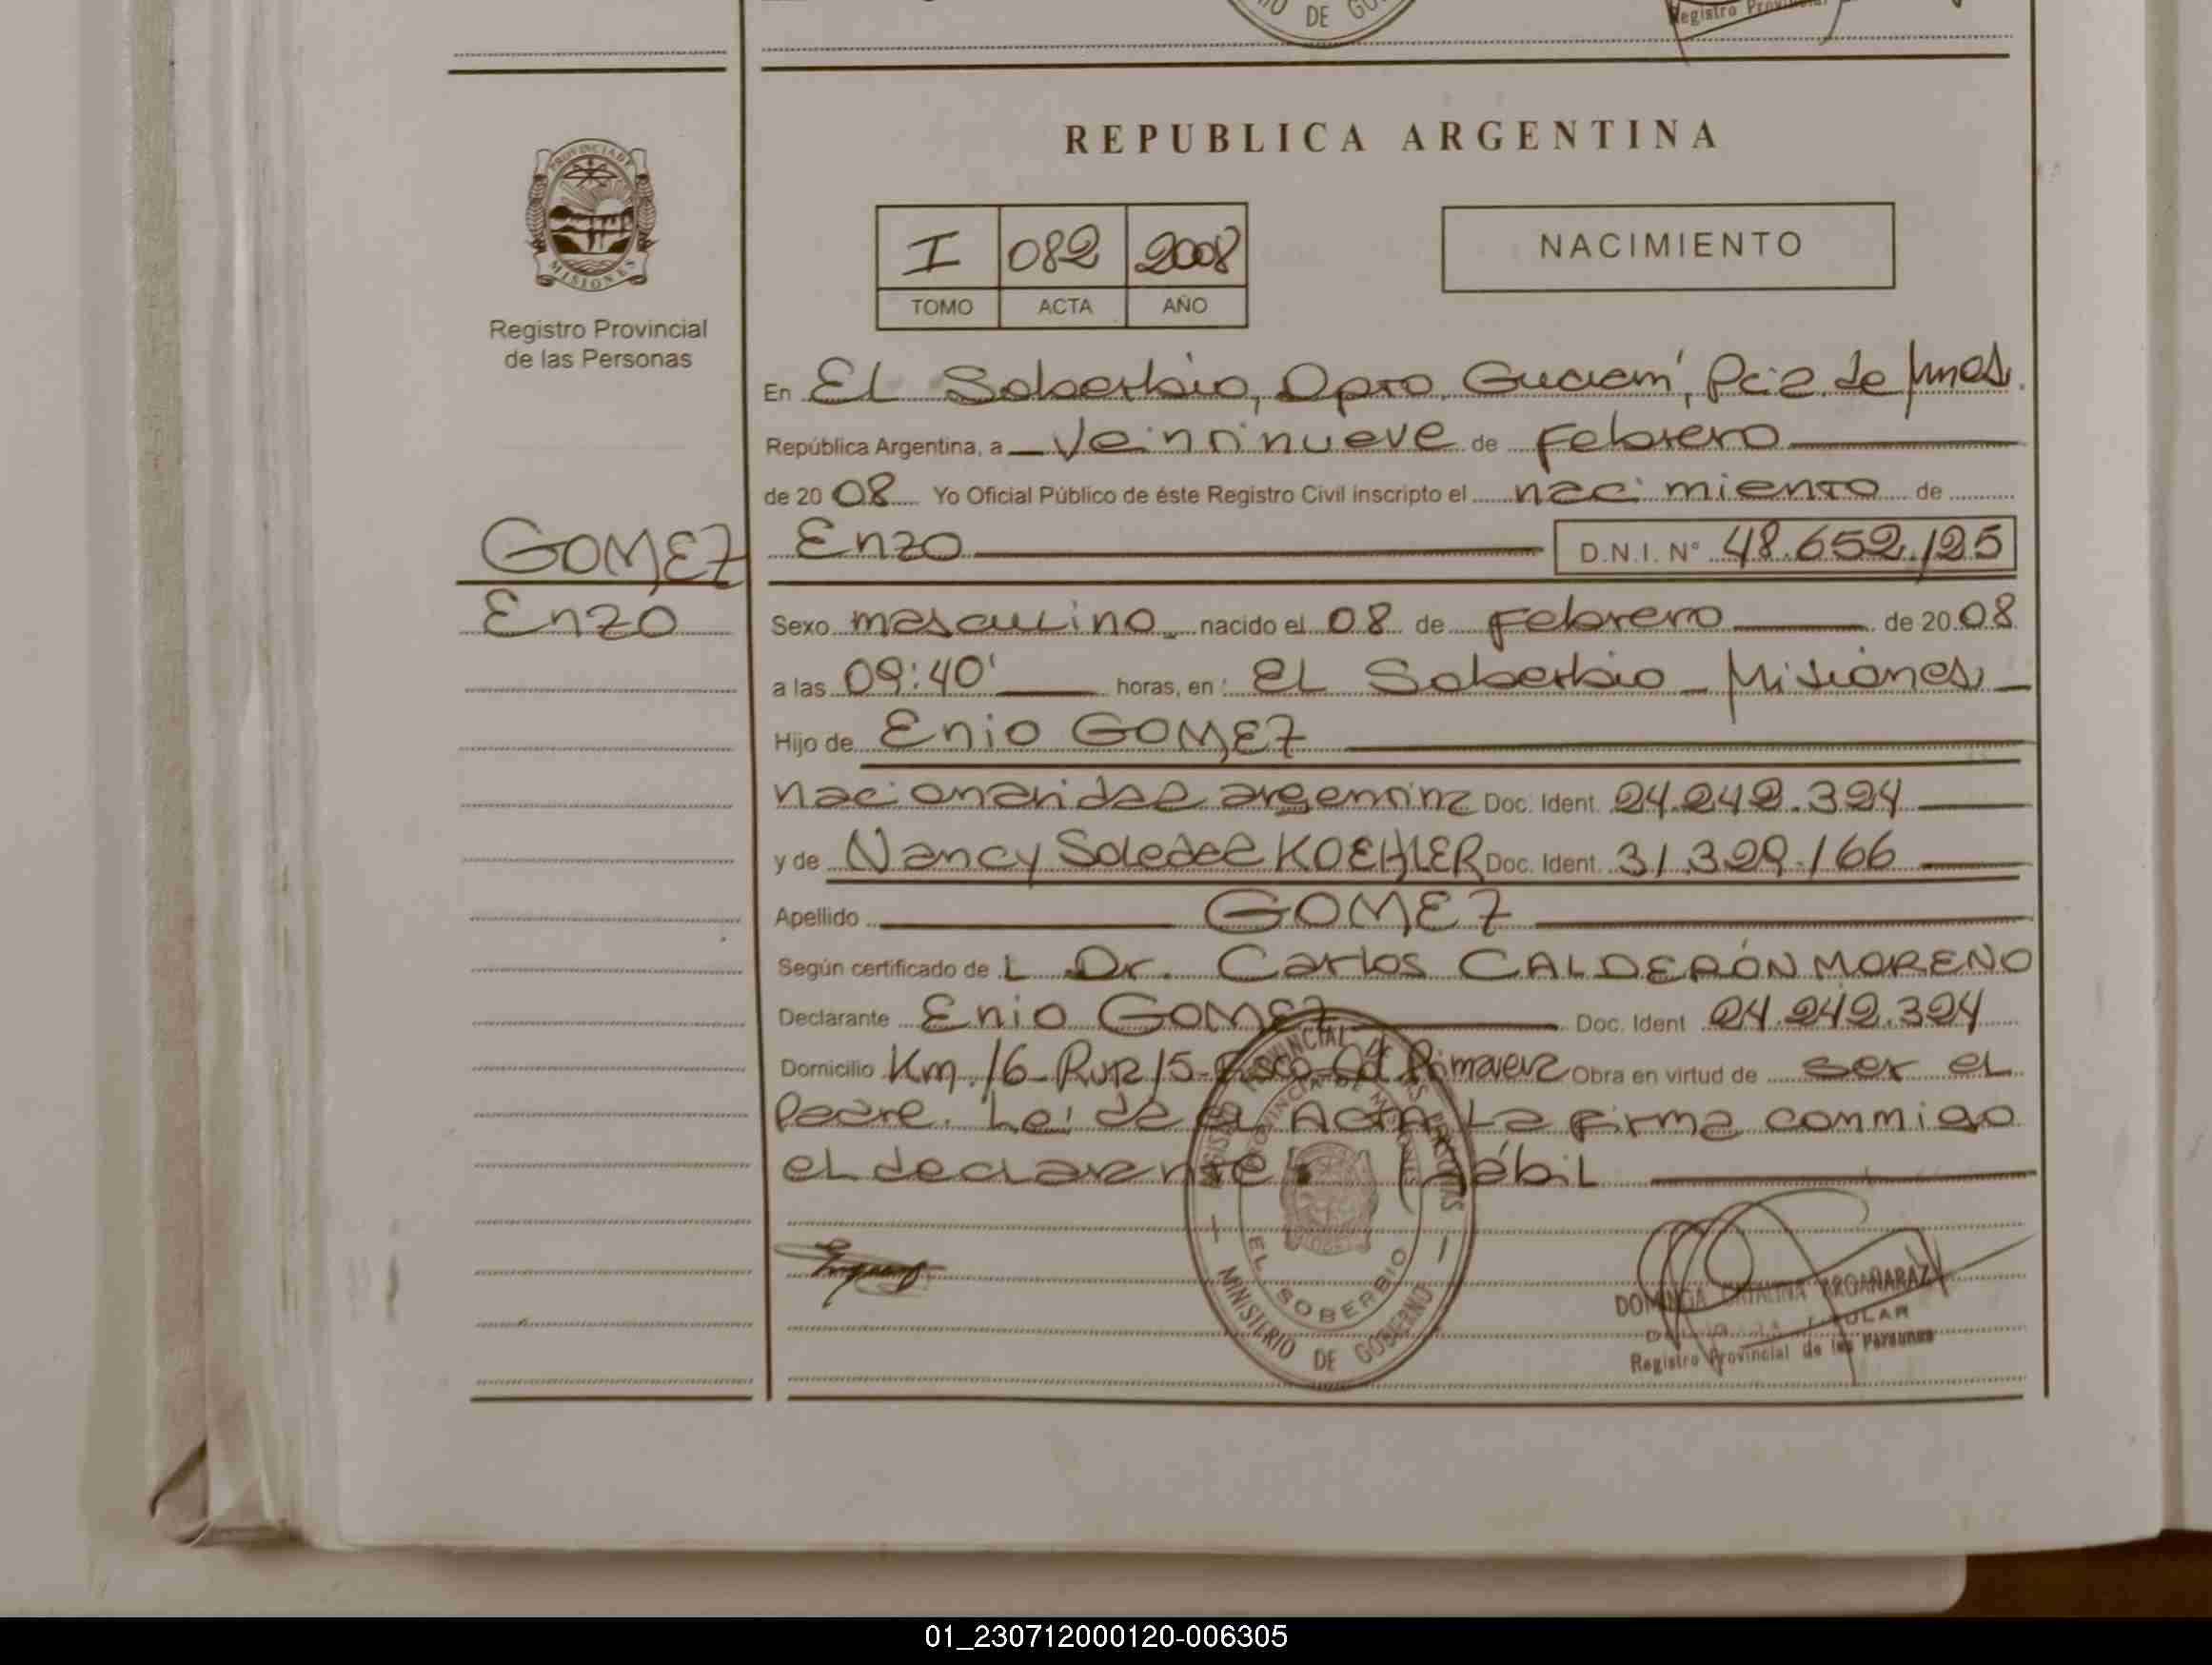 DE
Registro Provincial
REPUBLICA ARGENTINA
PROVINCIA DE
MISIONES
Registro Provincial
de las Personas
I 082 2008
TOMO ACTA AÑO
NACIMIENTO
En El Soberbio, Dpto. Guaraní, Pcia. de Mnes.
República Argentina, a Veintinueve de Febrero
de 2008 Yo Oficial Público de éste Registro Civil inscripto el nacimiento de
GOMEZ
Enzo D.N.I. N° 48.652.125
Enzo
Sexo masculino nacido el 08 de Febrero de 2008
a las 09:40' horas, en El Soberbio - Misiones
Hijo de Enio GOMEZ
nacionalidad argentina Doc. Ident. 24.242.324
y de Nancy Soledad KOEHLER Doc. Ident. 31.329.166
Apellido GOMEZ
Según certificado de L Dr. Carlos CALDERÓN MORENO
Declarante Enio GOMEZ Doc. Ident 24.242.324
Domicilio Km. 16 - Ruta 15 - Primavera Obra en virtud de ser el
Padre. Leída el Acta La firma conmigo
el declarante. Hábil
MINISTERIO DE GOBIERNO
EL SOBERBIO
DOMINGA CATALINA ARGAÑARAZ
TITULAR
Registro Provincial de las Personas
01_230712000120-006305